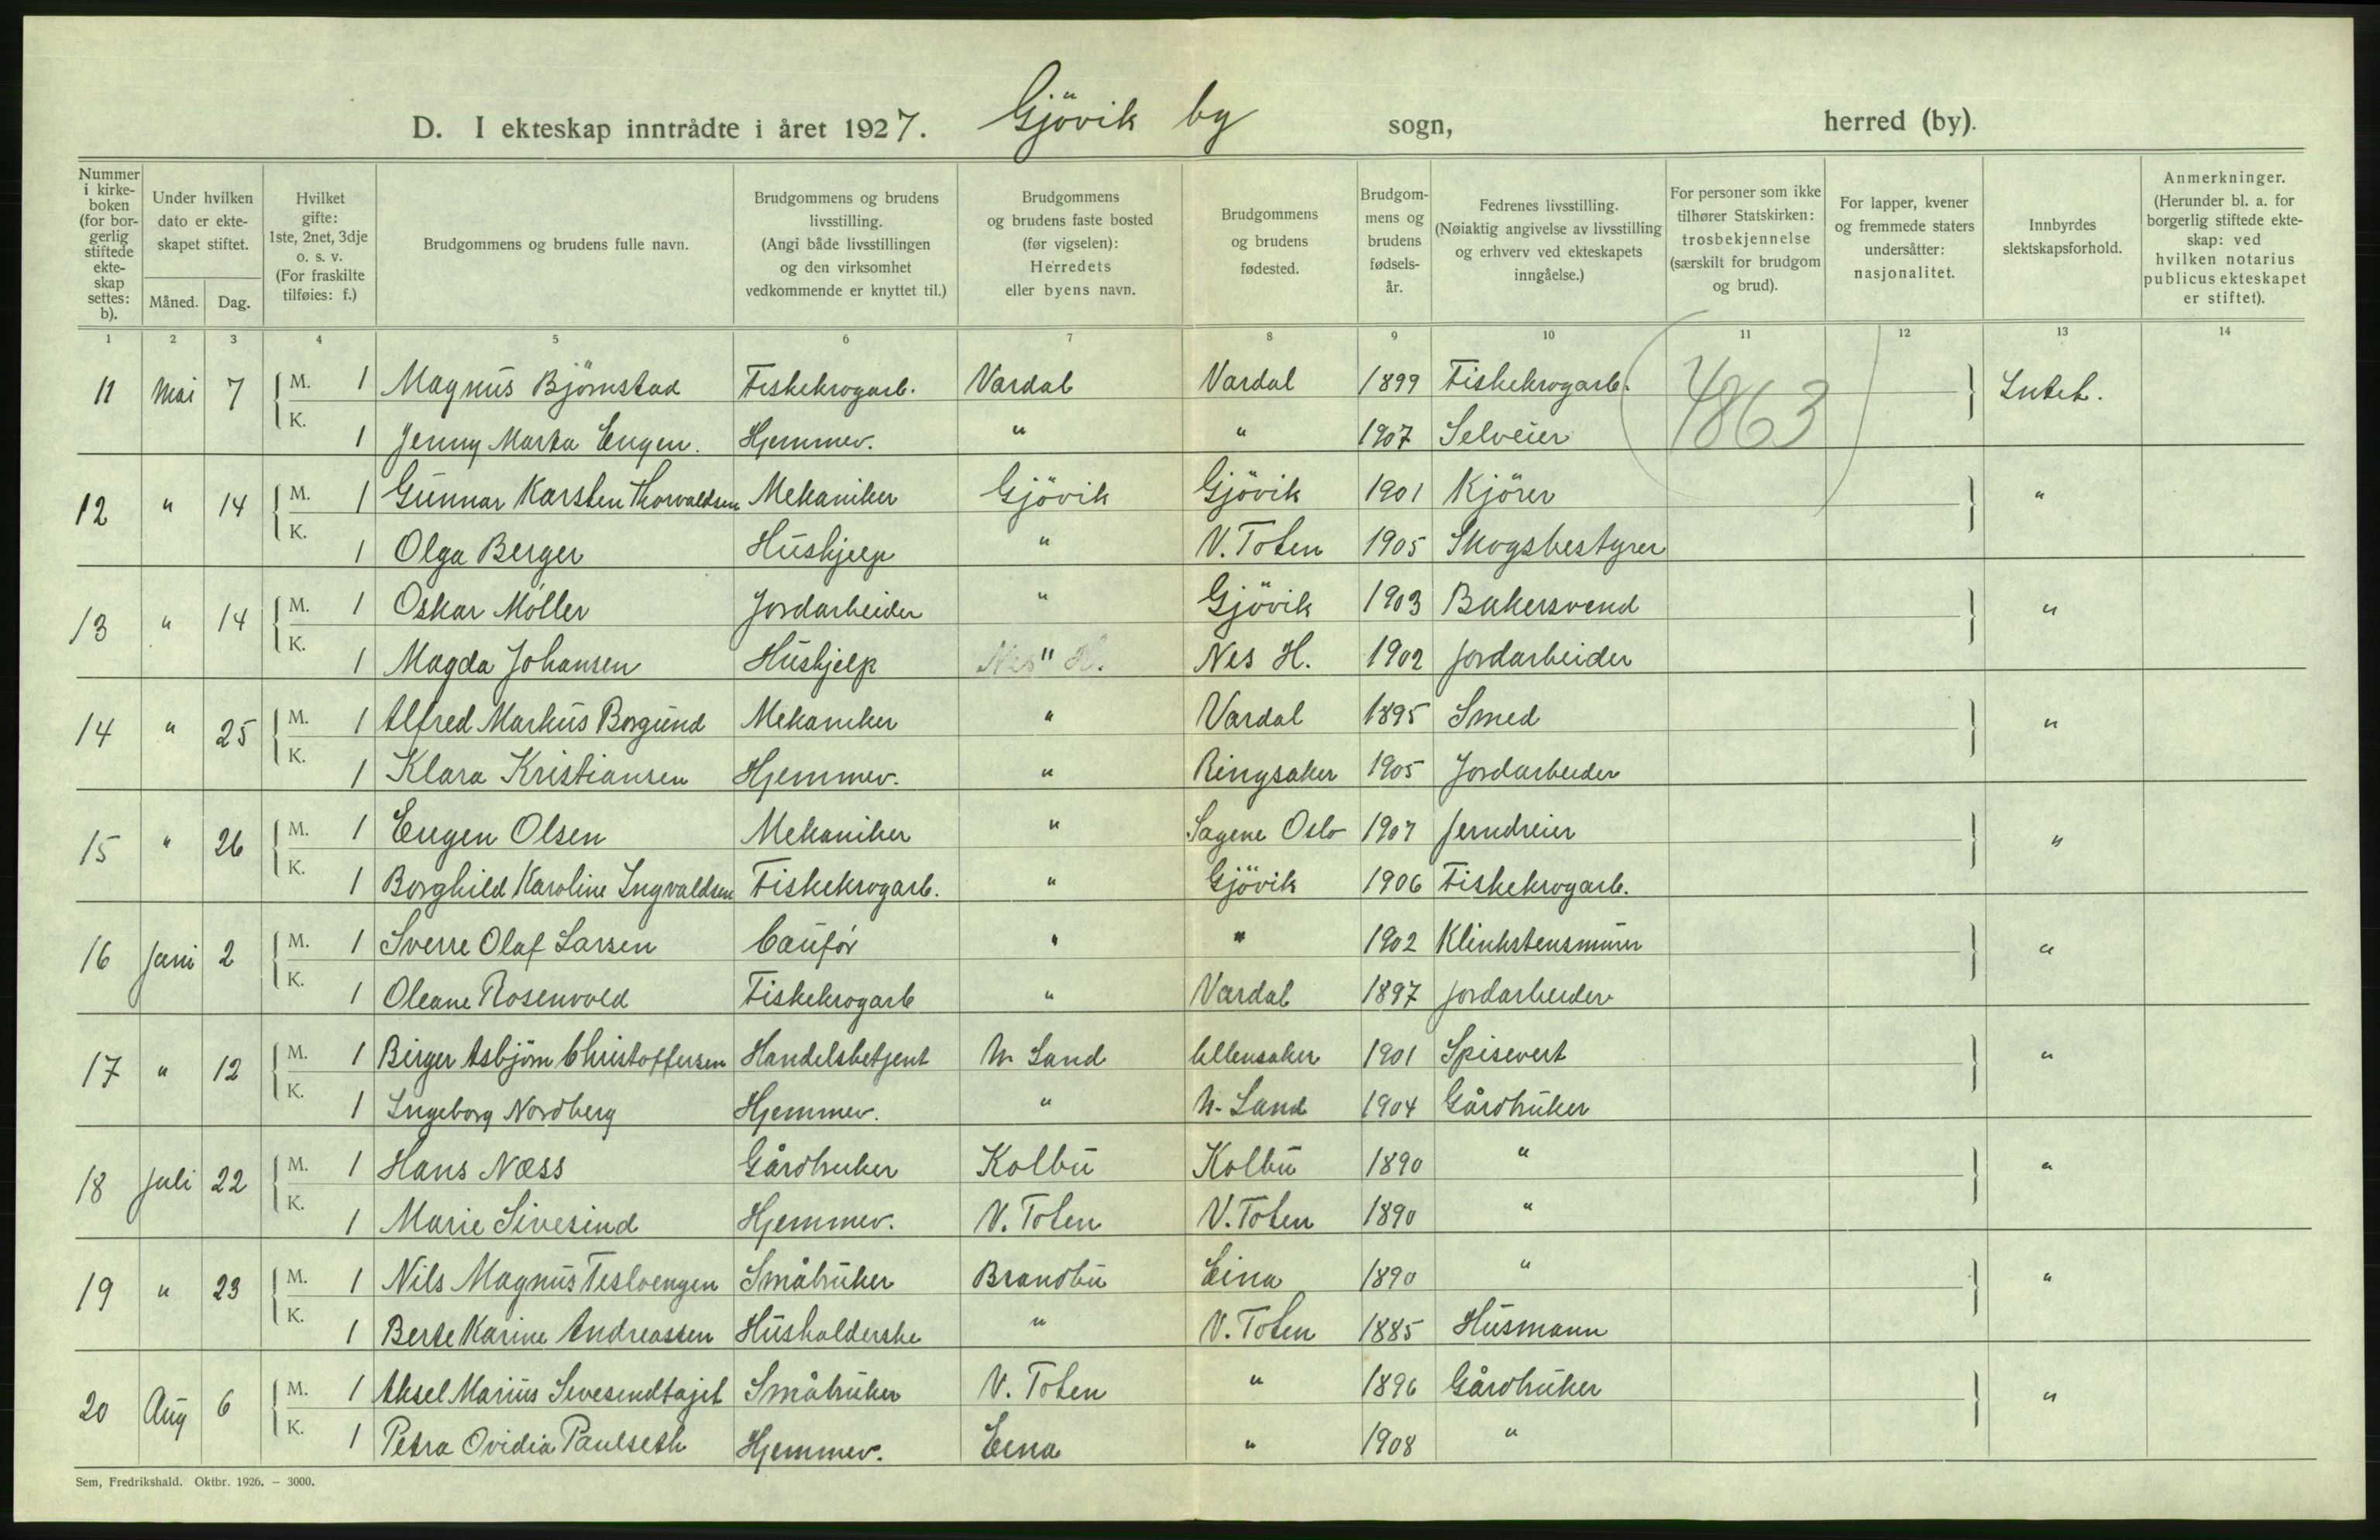 D. I ekteskap inntrådte i året 1927. Gjövik by sogn, herred (by).
Nummer i kirke-boken (for bor-gerlig stiftede ekte-skap settes: b).
Under hvilken dato er ekte-skapet stiftet.
Måned. Dag.
Hvilket gifte: 1ste, 2net, 3dje o. s. v. (For fraskilte tilføies: f.)
Brudgommens og brudens fulle navn.
Brudgommens og brudens livsstilling. (Angi både livsstillingen og den virksomhet vedkommende er knyttet til.)
Brudgommens og brudens faste bosted (før vigselen): Herredets eller byens navn.
Brudgommens og brudens fødested.
Brudgom-mens og brudens fødsels-år.
Fedrenes livsstilling. (Nøiaktig angivelse av livsstilling og erhverv ved ekteskapets inngåelse.)
For personer som ikke tilhører Statskirken: trosbekjennelse (særskilt for brudgom og brud).
For lapper, kvener og fremmede staters undersåtter: nasjonalitet.
Innbyrdes slektskapsforhold.
Anmerkninger. (Herunder bl. a. for borgerlig stiftede ekte-skap: ved hvilken notarius publicus ekteskapet er stiftet).
1 2 3 4 5 6 7 8 9 10 11 12 13 14
11 Mai 7 M. 1 Magnus Björnstad Fiskekrogarb. Vardal Vardal 1899 Fiskekrogarb. (4863) Intet.
K. 1 Jenny Marta Engen. Hjemmev. " " 1907 Selveier
12 " 14 M. 1 Gunnar Karsten Thorvaldsen Mekaniker Gjövik Gjövik 1901 Kjörer "
K. 1 Olga Berger Hushjelp " V. Toten 1905 Skogsbestyrer
13 " 14 M. 1 Oskar Möller Jordarbeider " Gjövik 1903 Bakersvend "
K. 1 Magda Johansen Hushjelp Nes " H. Nes H. 1902 Jordarbeider
14 " 25 M. 1 Alfred Markus Borgund Mekaniker " Vardal 1895 Smed "
K. 1 Klara Kristiansen Hjemmev. " Ringsaker 1905 Jordarbeider
15 " 26 M. 1 Eugen Olsen Mekaniker " Sagene Oslo 1907 Jerndreier "
K. 1 Borghild Karoline Ingvaldsen Fiskekrogarb. " Gjövik 1906 Fiskekrogarb.
16 Juni 2 M. 1 Sverre Olaf Larsen Cauför " " 1902 Klinkstensmurer "
K. 1 Oleane Rosenvold Fiskekrogarb " Vardal 1897 Jordarbeider
17 " 12 M. 1 Birger Asbjörn Christoffersen Handelsbetjent N. Land Ullensaker 1901 Spisevert "
K. 1 Ingeborg Nordberg Hjemmev. " N. Land 1904 Gårdbruker
18 Juli 22 M. 1 Hans Næss Gårdbruker Kolbu Kolbu 1890 " "
K. 1 Marie Sivesind Hjemmev. V. Toten V. Toten 1890 "
19 " 23 M. 1 Nils Magnus Tesloengen Småbruker Brandbu Eina 1890 " "
K. 1 Berte Karine Andreassen Husholderske " V. Toten 1885 Husmann
20 Aug 6 M. 1 Aksel Marius Sivesindtajet Småbruker V. Toten " 1896 Gårdbruker "
K. 1 Petra Ovidia Paulseth Hjemmev. Eina " 1908 "
Sem, Fredrikshald. Oktbr. 1926. – 3000.